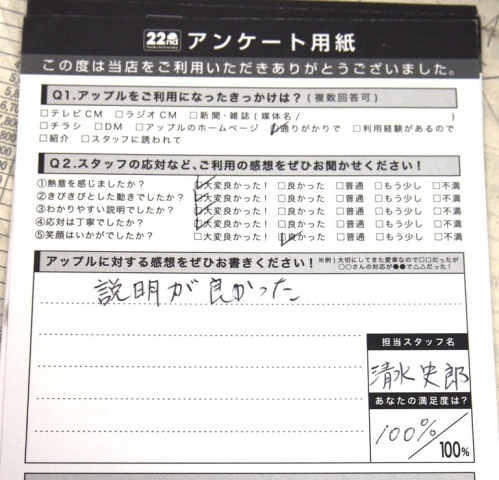 22nd アンケート用紙
この度は当店をご利用いただきありがとうございました。
Q1.アップルをご利用になったきっかけは？(複数回答可)
□テレビCM □ラジオCM □新聞・雑誌(媒体名/ )
□チラシ □DM □アップルのホームページ □通りがかりで □利用経験があるので
□紹介 □スタッフに誘われて
Q2.スタッフの応対など、ご利用の感想をぜひお聞かせください！
①熱意を感じましたか？ □大変良かった！ □良かった □普通 □もう少し □不満
②きびきびとした動きでしたか？ □大変良かった！ □良かった □普通 □もう少し □不満
③わかりやすい説明でしたか？ □大変良かった！ □良かった □普通 □もう少し □不満
④応対は丁寧でしたか？ □大変良かった！ □良かった □普通 □もう少し □不満
⑤笑顔はいかがでしたか？ □大変良かった！ □良かった □普通 □もう少し □不満
アップルに対する感想をぜひお書きください！ ※例）大切にしてきた愛車なので□□だったが
○○さんの対応が●●で△△だった！
説明が良かった
担当スタッフ名
清水史郎
あなたの満足度は？
100%/100%